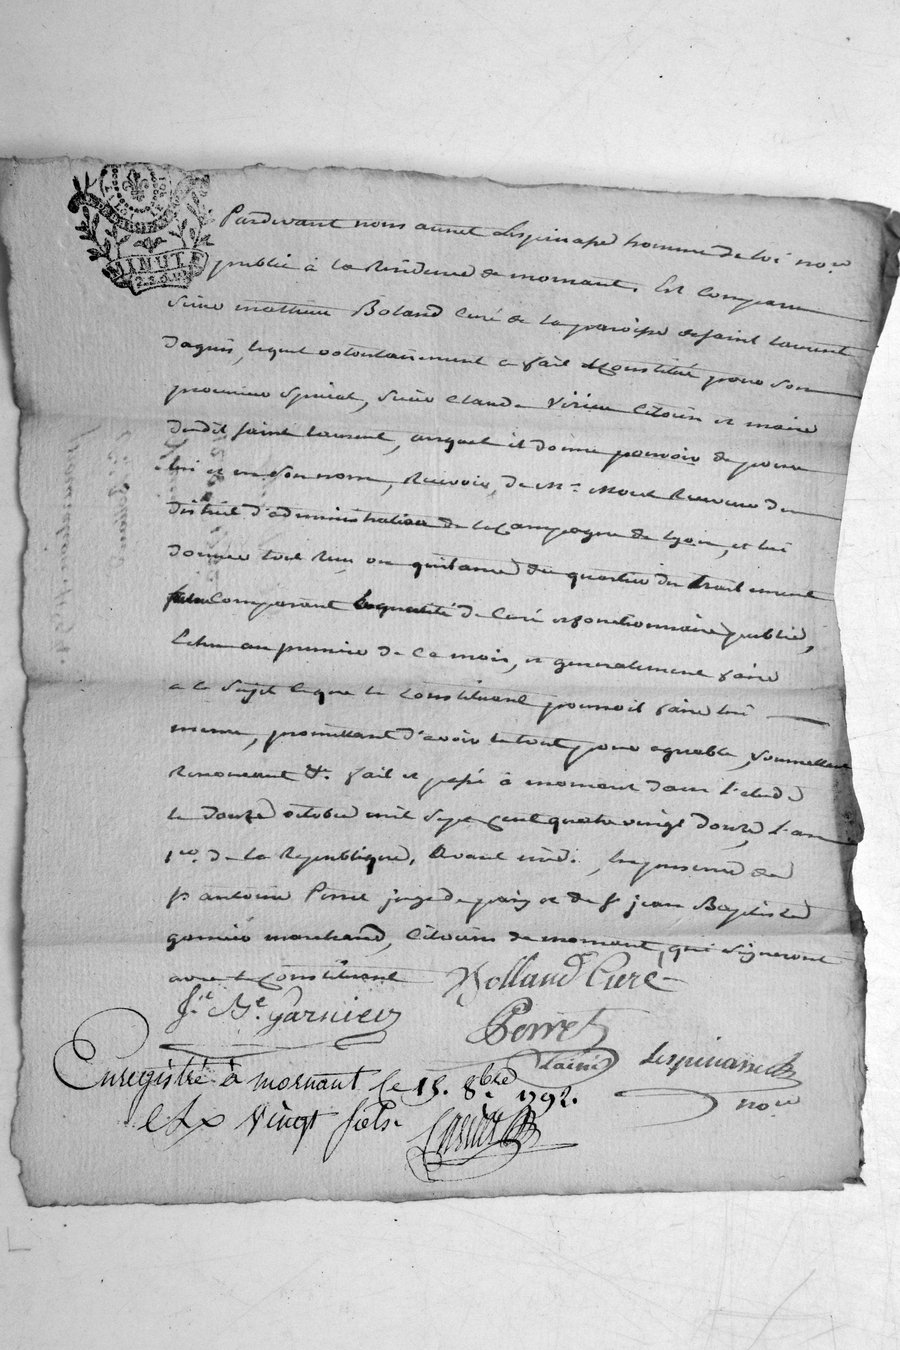 LA LOI LE ROI
MINUTE
2. S. 6. D.
Pardevant nous annet Lespinasse homme de loi no.re
public à la Résidence de mornant. Est comparu
sieur mathieu Boland Curé de la paroisse de saint laurent
dagni, lequel volontairement a fait & constitué pour son
procureur spécial, sieur Claude Citoien et maire
dudit saint laurent, auquel il donne pouvoir de pour
lui et en son nom, Recevoir, de Mr. Receveur du
district d'administration de la Campagne de Lyon, et lui
donner tout Reçu ou quittance du quartier du traitement
comparant de Curé et fonctionnaire public,
Echu au premier de ce mois, et généralement faire
a ce sujet ce que le constituant pourroit faire lui
meme, promettant d'avoir le tout pour agréable, soumettant
Renonceant &a. fait et passé à mornant dans l'etude
le douze octobre mil sept cent quatre vingt douze, l'an
1er. de la République, avant midi. En présence de
sr antoine Perret juge de paix et de sr jean Baptiste
garnier marchand, Citoiens de mornant, qui signeront
avec le constituant Rolland Curé
J.n B.te Garnier
Perret
Lainé Lespinasse
no.re
Enregistré à mornant le 15. 8bre 1792.
vingt sols.